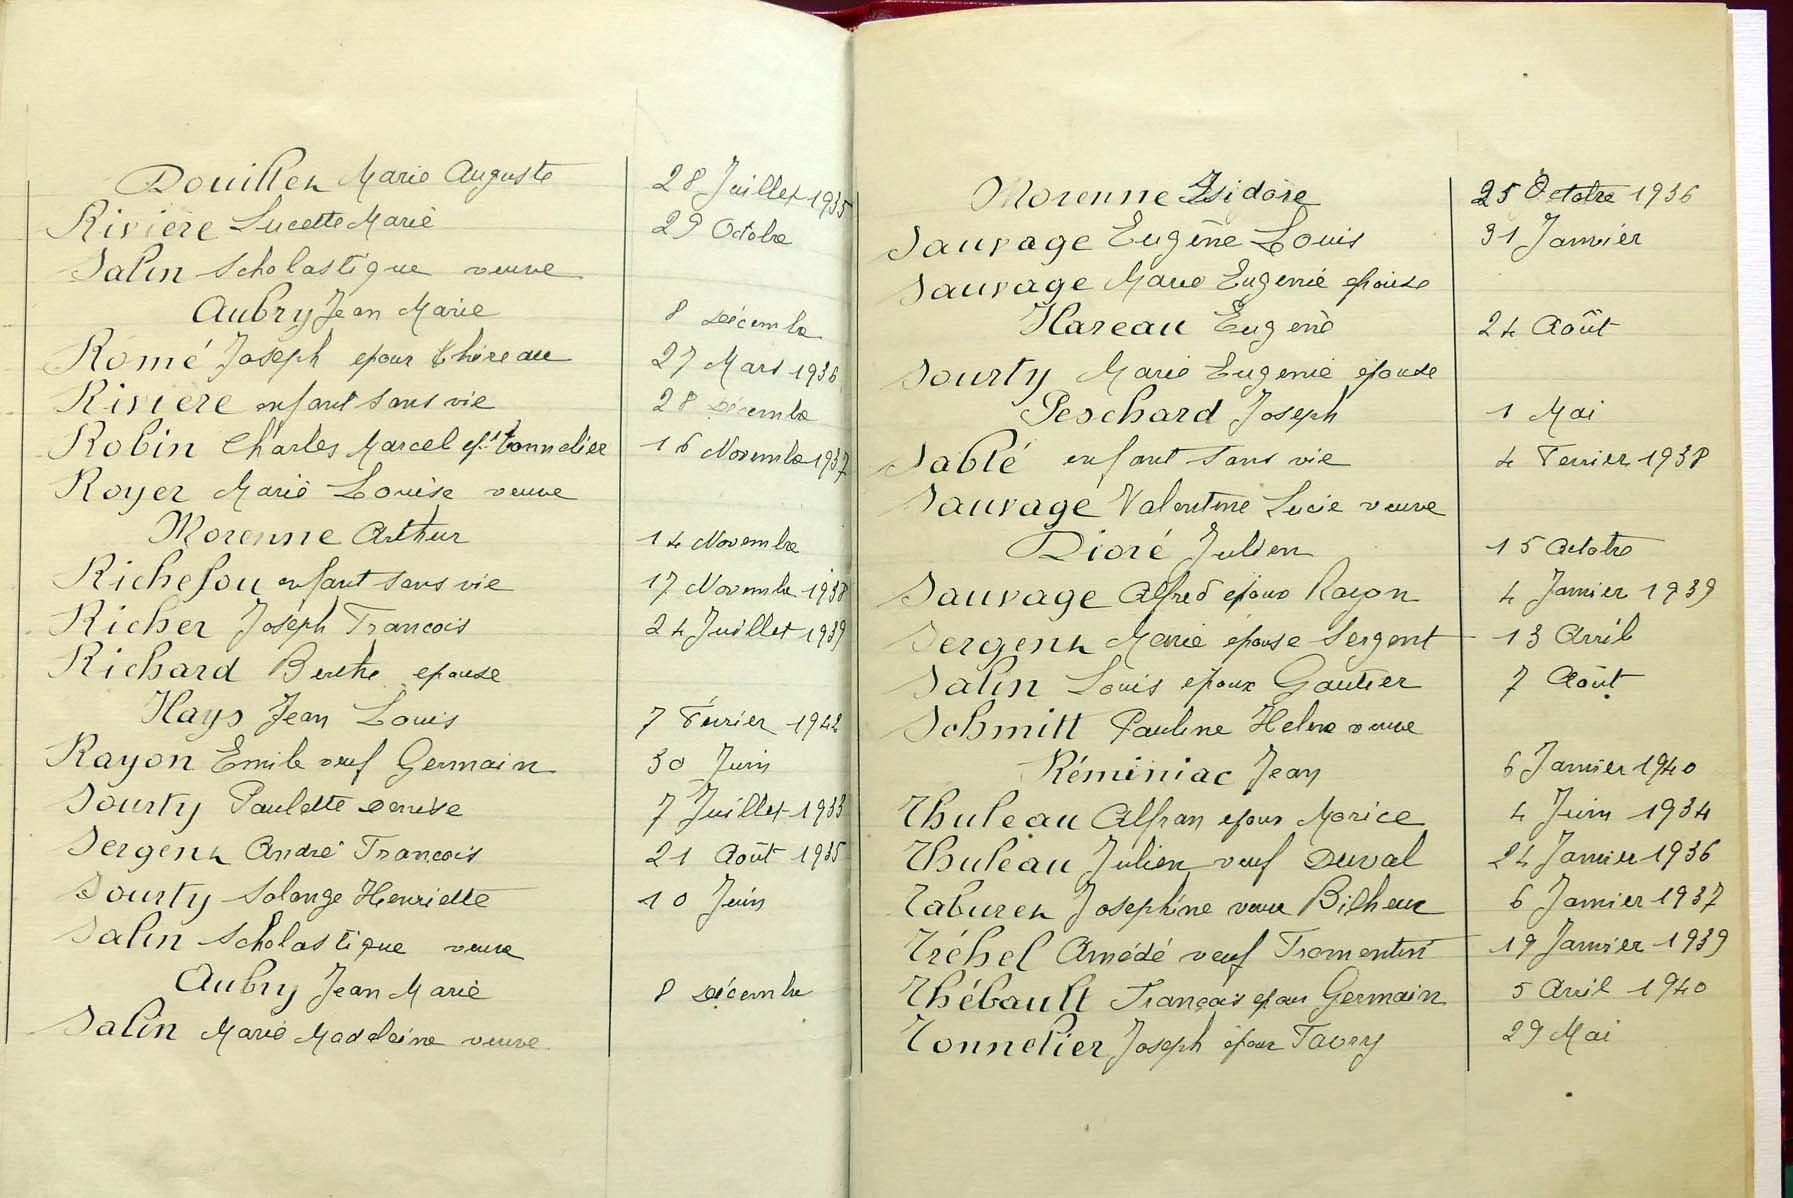 Douillet Marie Auguste 28 Juillet 1935
Rivière Lucette Marie 29 Octobre
Salin Scholastique veuve
Aubry Jean Marie 8 Décembre
Romé Joseph époux Théreau 27 Mars 1936
Rivière enfant sans vie 28 Décembre
Robin Charles Marcel épx Tonnelier 16 Novembre 1937
Royer Marie Louise veuve
Morenne Arthur 14 Novembre
Richefou enfant sans vie 17 Novembre 1938
Richer Joseph François 24 Juillet 1939
Richard Berthe épouse
Hays Jean Louis 7 Février 1942
Rayon Emile veuf Germain 30 Juin
Sourty Paulette Denise 7 Juillet 1933
Sergent André François 21 Août 1935
Sourty Solange Henriette 10 Juin
Salin Scholastique veuve
Aubry Jean Marie 8 Décembre
Salin Marie Madeleine veuve
Morenne Isidore 25 Octobre 1936
Sauvage Eugène Louis 31 Janvier
Sauvage Marie Eugenie épouse
Hareau Eugène 24 Août
Sourty Marie Eugenie épouse
Peschard Joseph 1 Mai
Sablé enfant sans vie 4 Fevrier 1938
Sauvage Valentine Lucie veuve
Dioré Julien 15 Octobre
Sauvage Alfred époux Rayon 4 Janvier 1939
Sergent Marie épouse Sergent 13 Avril
Salin Louis époux Gautier 7 Août
Schmitt Pauline Helene veuve
Réminiac Jean 6 Janvier 1940
Thuleau Alfran époux Morice 4 Juin 1934
Thuleau Julien veuf Duval 24 Janvier 1936
Taburet Josephine veuve Bilheux 6 Janvier 1937
Tréhel Amédé veuf Fromentin 19 Janvier 1939
Thébault François époux Germain 5 Avril 1940
Tonnelier Joseph époux Favry 29 Mai